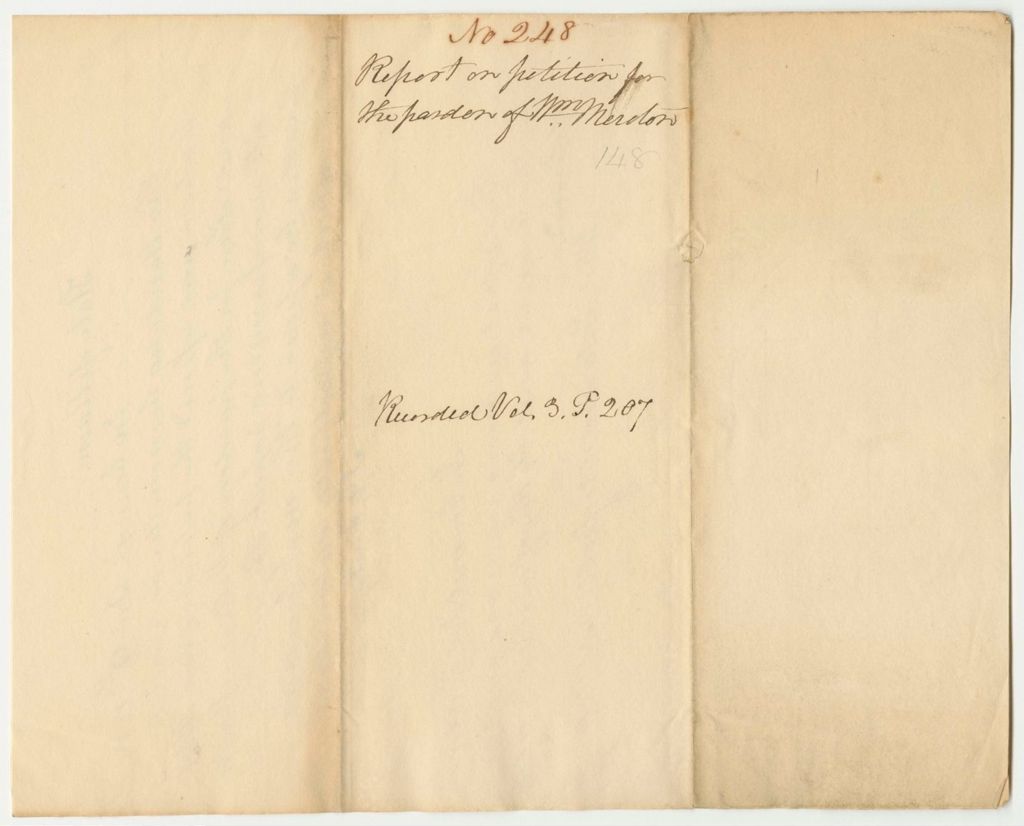 No 248
Report on petition for
the pardon of Wm
148
Recorded Vol. 3. P. 207